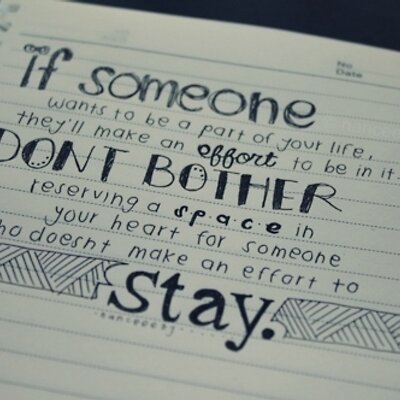 No
Date
if someone
wants to be a part of your life,
they'll make an effort to be in it.
DONT BOTHER
reserving a space in
your heart for someone
who doesnt make an effort to
Stay.